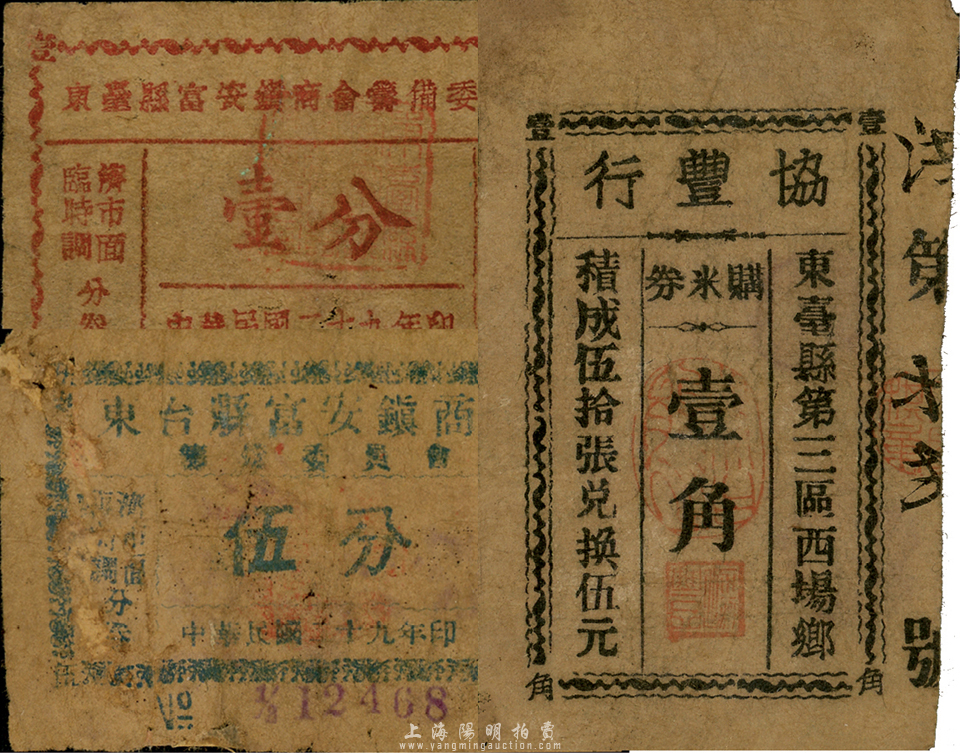 壹
東臺縣富安鎮商會籌備委
臨時調
濟市面
分券
壹分
中華民國二十九年印
東台縣富安鎮商
籌備委員會
濟市面
分券
伍分
中華民國二十九年印
12468
壹
壹
協豐行
東臺縣第三區西場鄉
購米券
壹角
積成伍拾張兌换伍元
角
角
第
號
上海陽明拍賣
www.yangmingauction.com